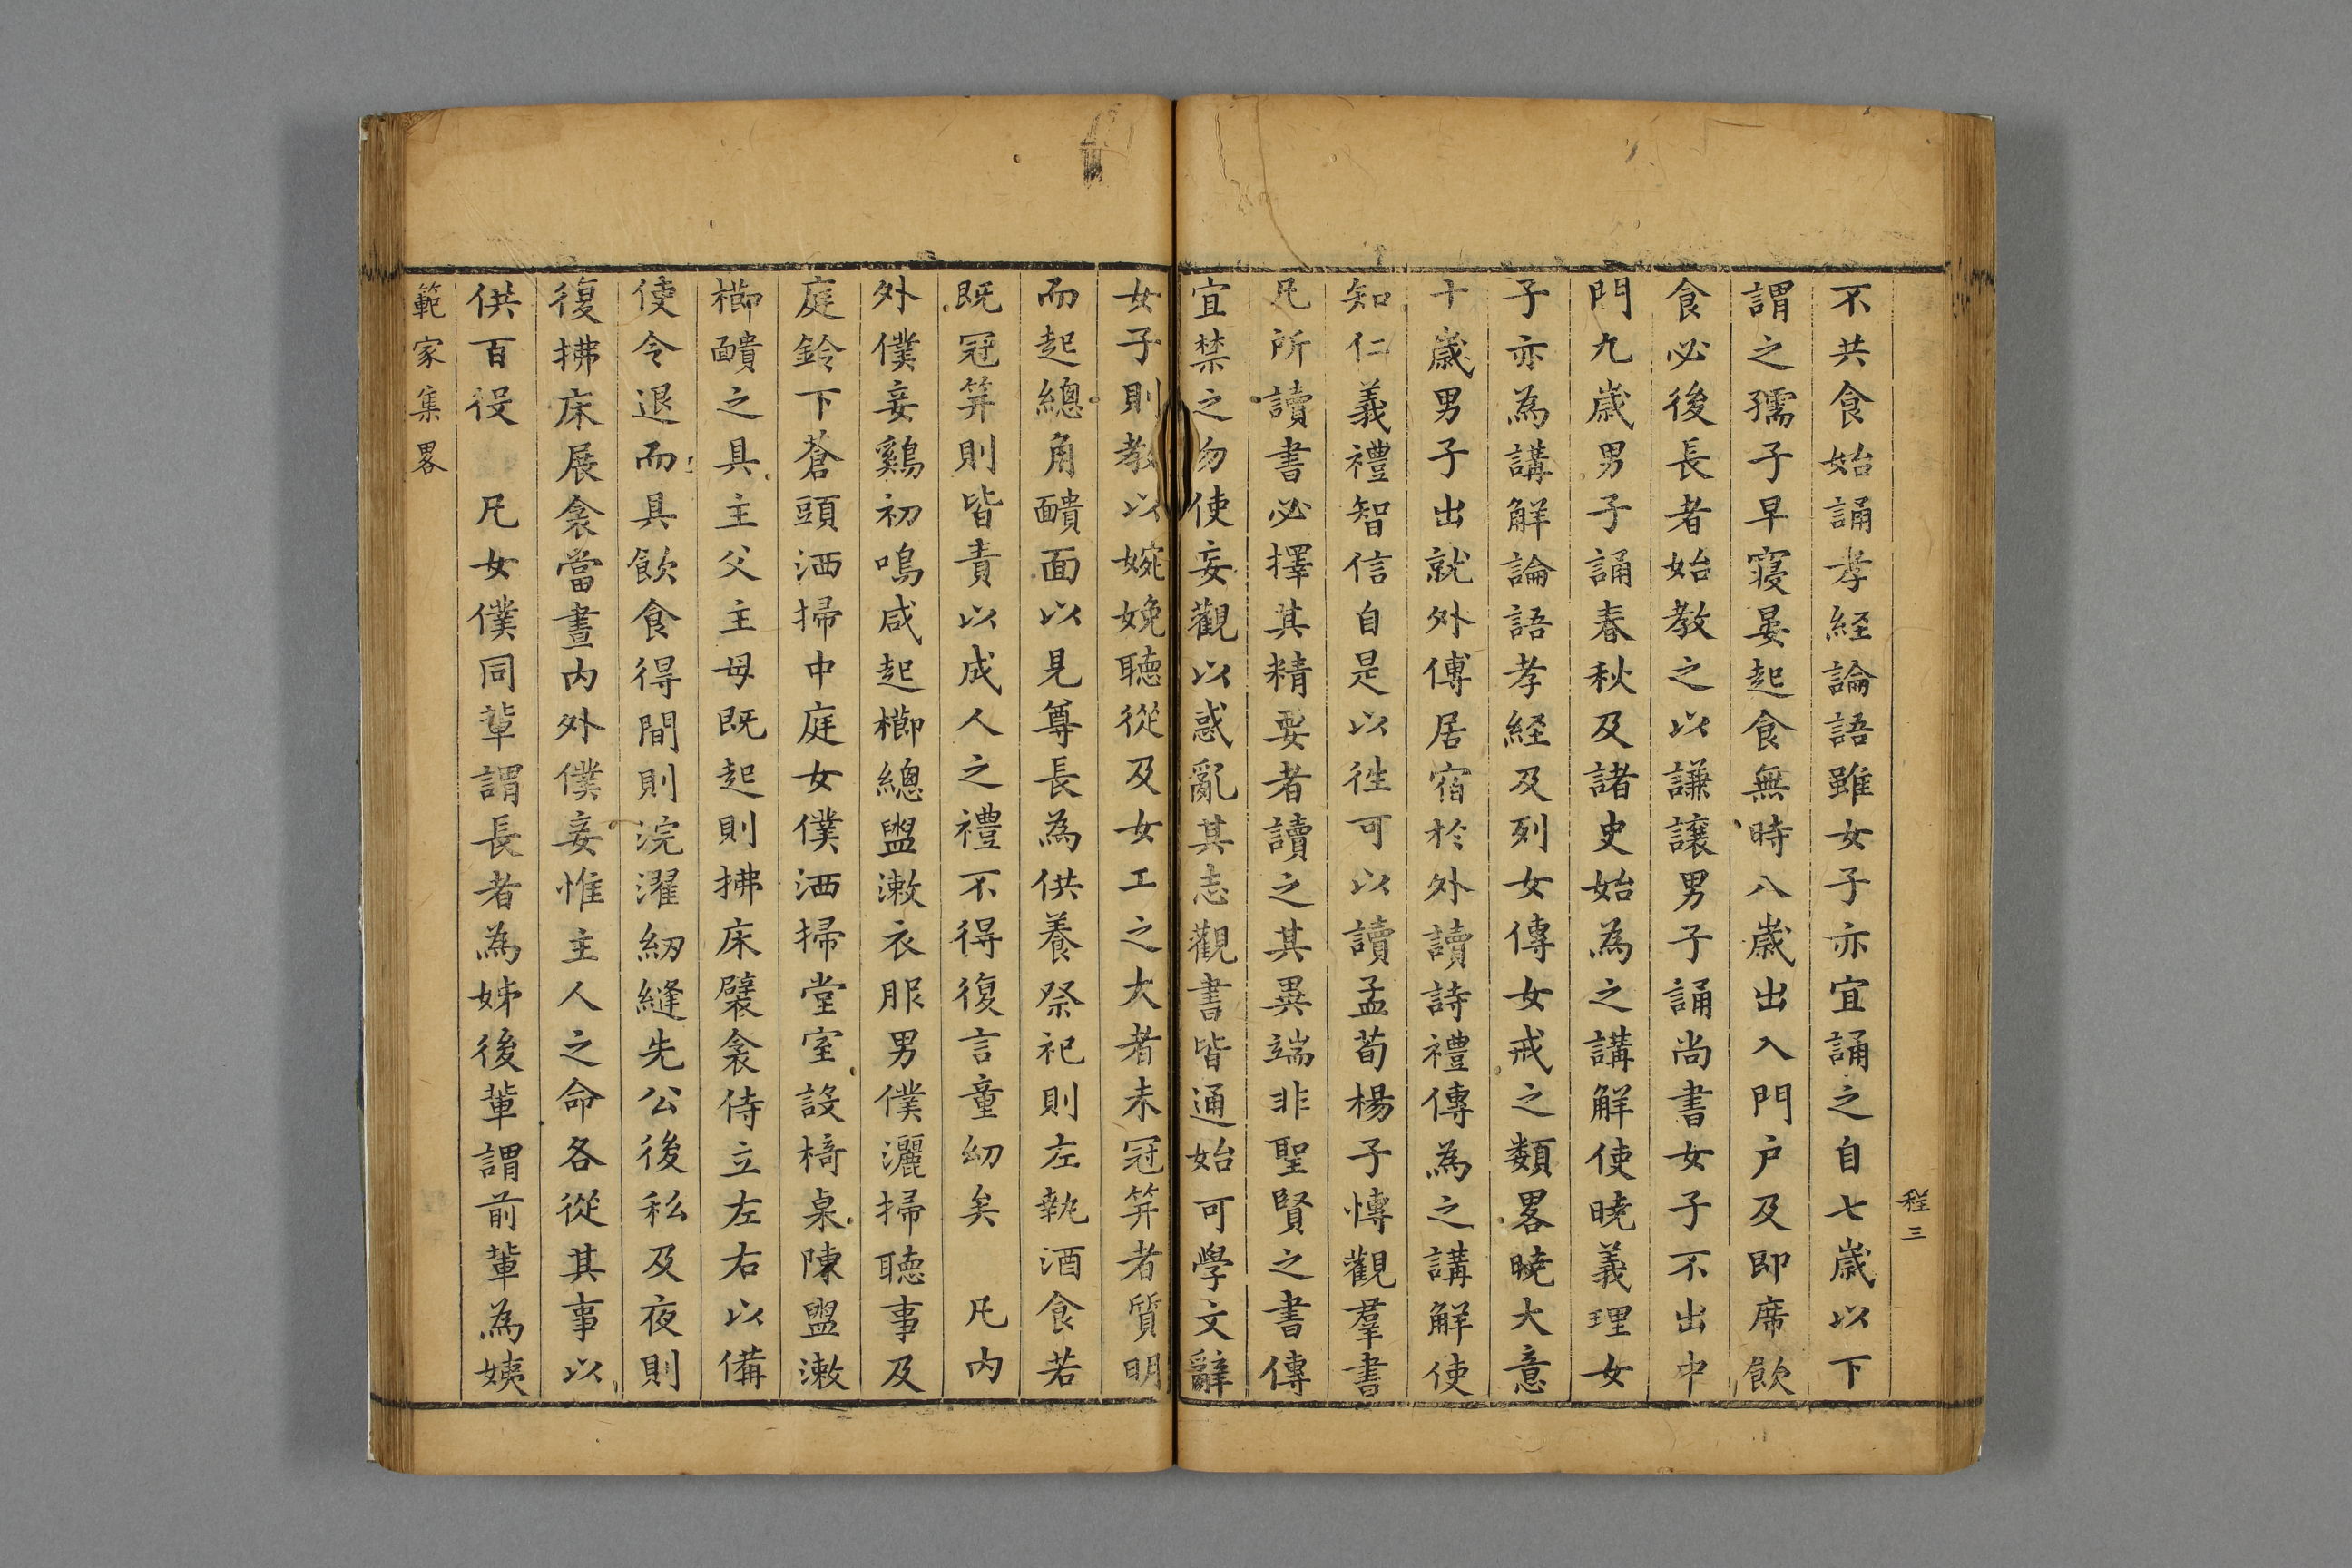 程三
不共食始誦孝経論語雖女子亦宜誦之自七歲以下
謂之孺子早寝晏起食無時八歲出入門户及即席飲
食必後長者始教之以謙譲男子誦尚書女子不出中
門九歲男子誦春秋及諸史始為之講解使曉義理女
子亦為講解論語孝経及列女傳女戒之類畧曉大意
十歲男子出就外傅居宿於外讀詩禮傳為之講解使
知仁義禮智信自是以徃可以讀孟荀楊子慱觀羣書
凡所讀書必擇其精要者讀之其異端非聖賢之書傳
宜禁之勿使妄觀以惑亂其志觀書皆通始可學文辭
女子則教以婉娩聽從及女工之大者未冠笄者質明
而起總角靧面以見尊長為供養祭祀則左執酒食若
既冠笄則皆責以成人之禮不得復言童幼矣　凡内
外僕妾鷄初鳴咸起櫛總盥漱衣服男僕灑掃聽事及
庭鈴下蒼頭洒掃中庭女僕洒掃堂室設椅桌陳盥漱
櫛靧之具主父主母既起則拂床襞衾侍立左右以備
使令退而具飲食得間則浣濯紉縫先公後私及夜則
復拂床展衾當晝内外僕妾惟主人之命各從其事以
供百役　凡女僕同軰謂長者為姊後軰謂前軰為姨
範家集畧